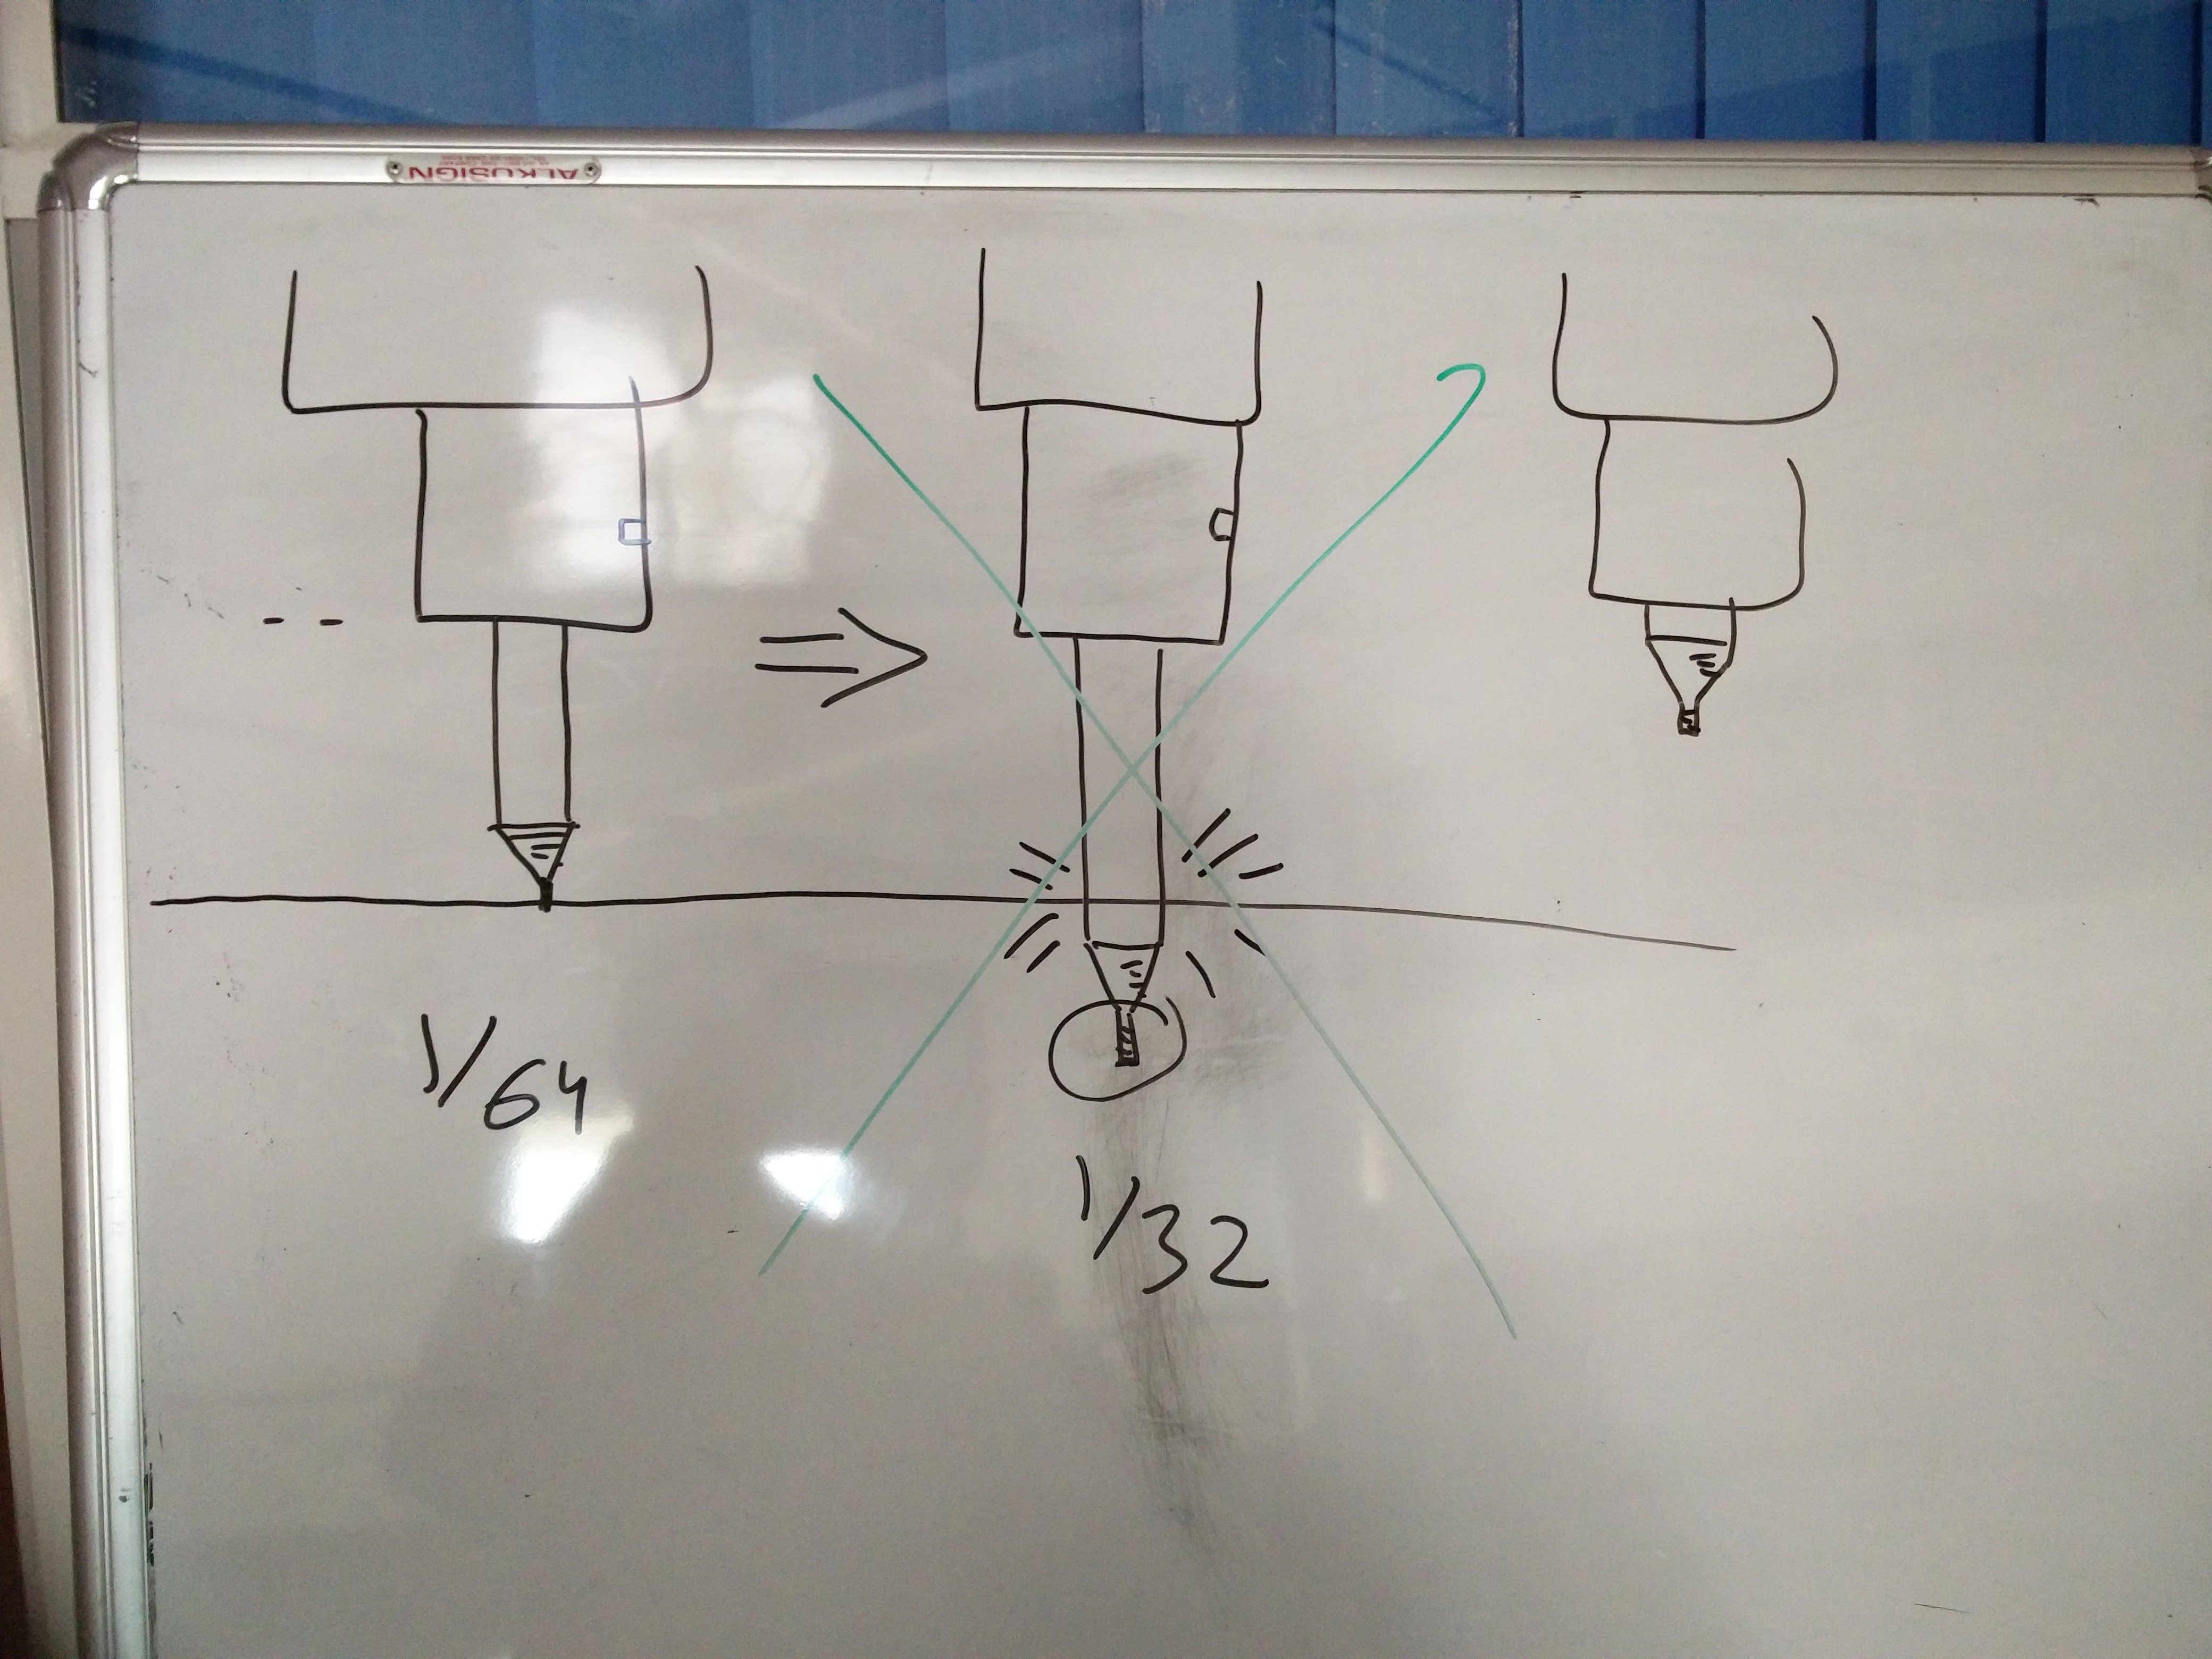 ALKUSIGN
1/64
1/32